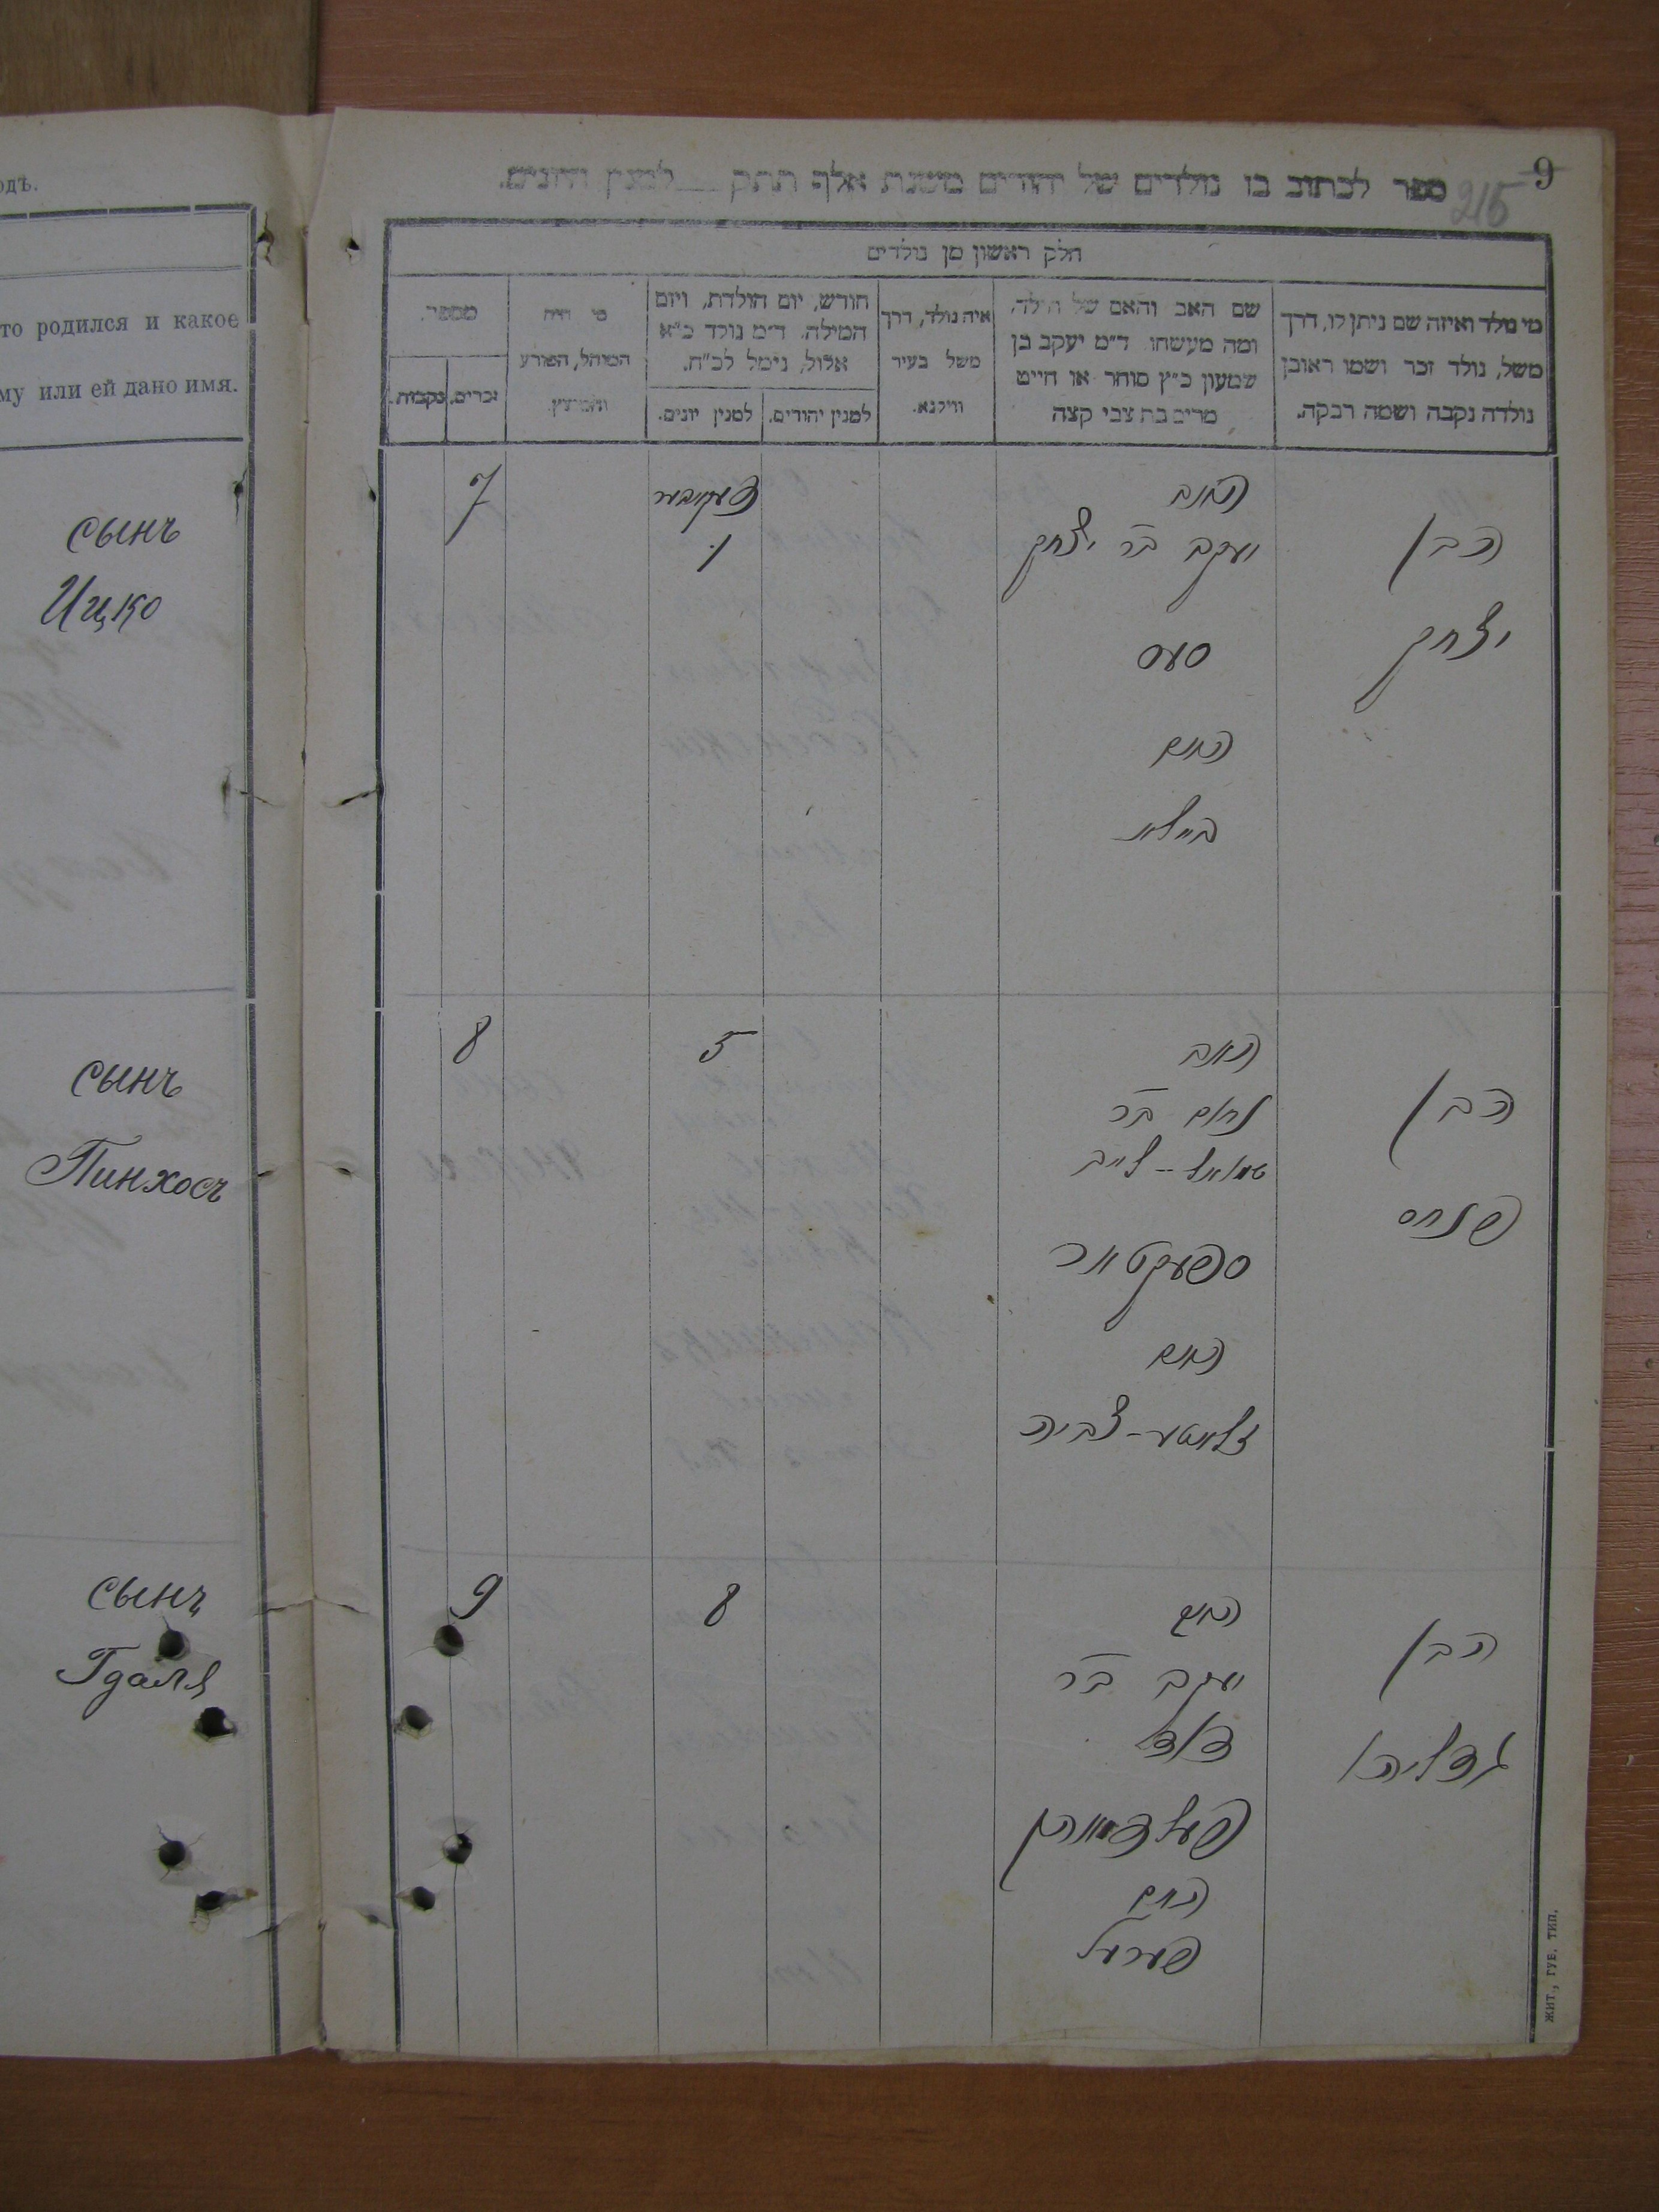 одъ.
то родился и какое
му или ей дано имя.
сынъ
Ицко
сынъ
Пинхосъ
сынъ
Гдаля
9
215
ספר לכתוב בו נולדים של יהודים משנת אלף תתק למנין היונים.
חלק ראשון מן נולדים
מי נולד ואיזה שם ניתן לו, דרך
משל, נולד זכר ושמו ראובן
נולדה נקבה ושמה רבקה.
שם האב והאם של הילד,
ומה מעשהו ד"מ יעקב בן
שמעון כ"ץ סוחר או חייט
מרים בת צבי קצה
איה נולד, דרך
משל בעיר
ווילנא.
חודש, יום הולדת, ויום
המילה. ד"מ נולד כ"א
אלול, נימל לכ"ח.
למנין יהודים.
למנין יונים.
מי היה
המוהל, הפורע
והמוצץ
מספר.
זכרים.
נקבות.
הבן
יצחק
האב
יעקב בר יצחק
סעס
האם
ביילא
1
7
הבן
פנחס
האב
נחום בר
שמואל-לייב
ספעקטאר
האם
זלאטע-צביה
5
8
הבן
גדליהו
יעקב בר
דוד
האם
פערעל
8
9
ЖИТ., ГУБ. ТИП.